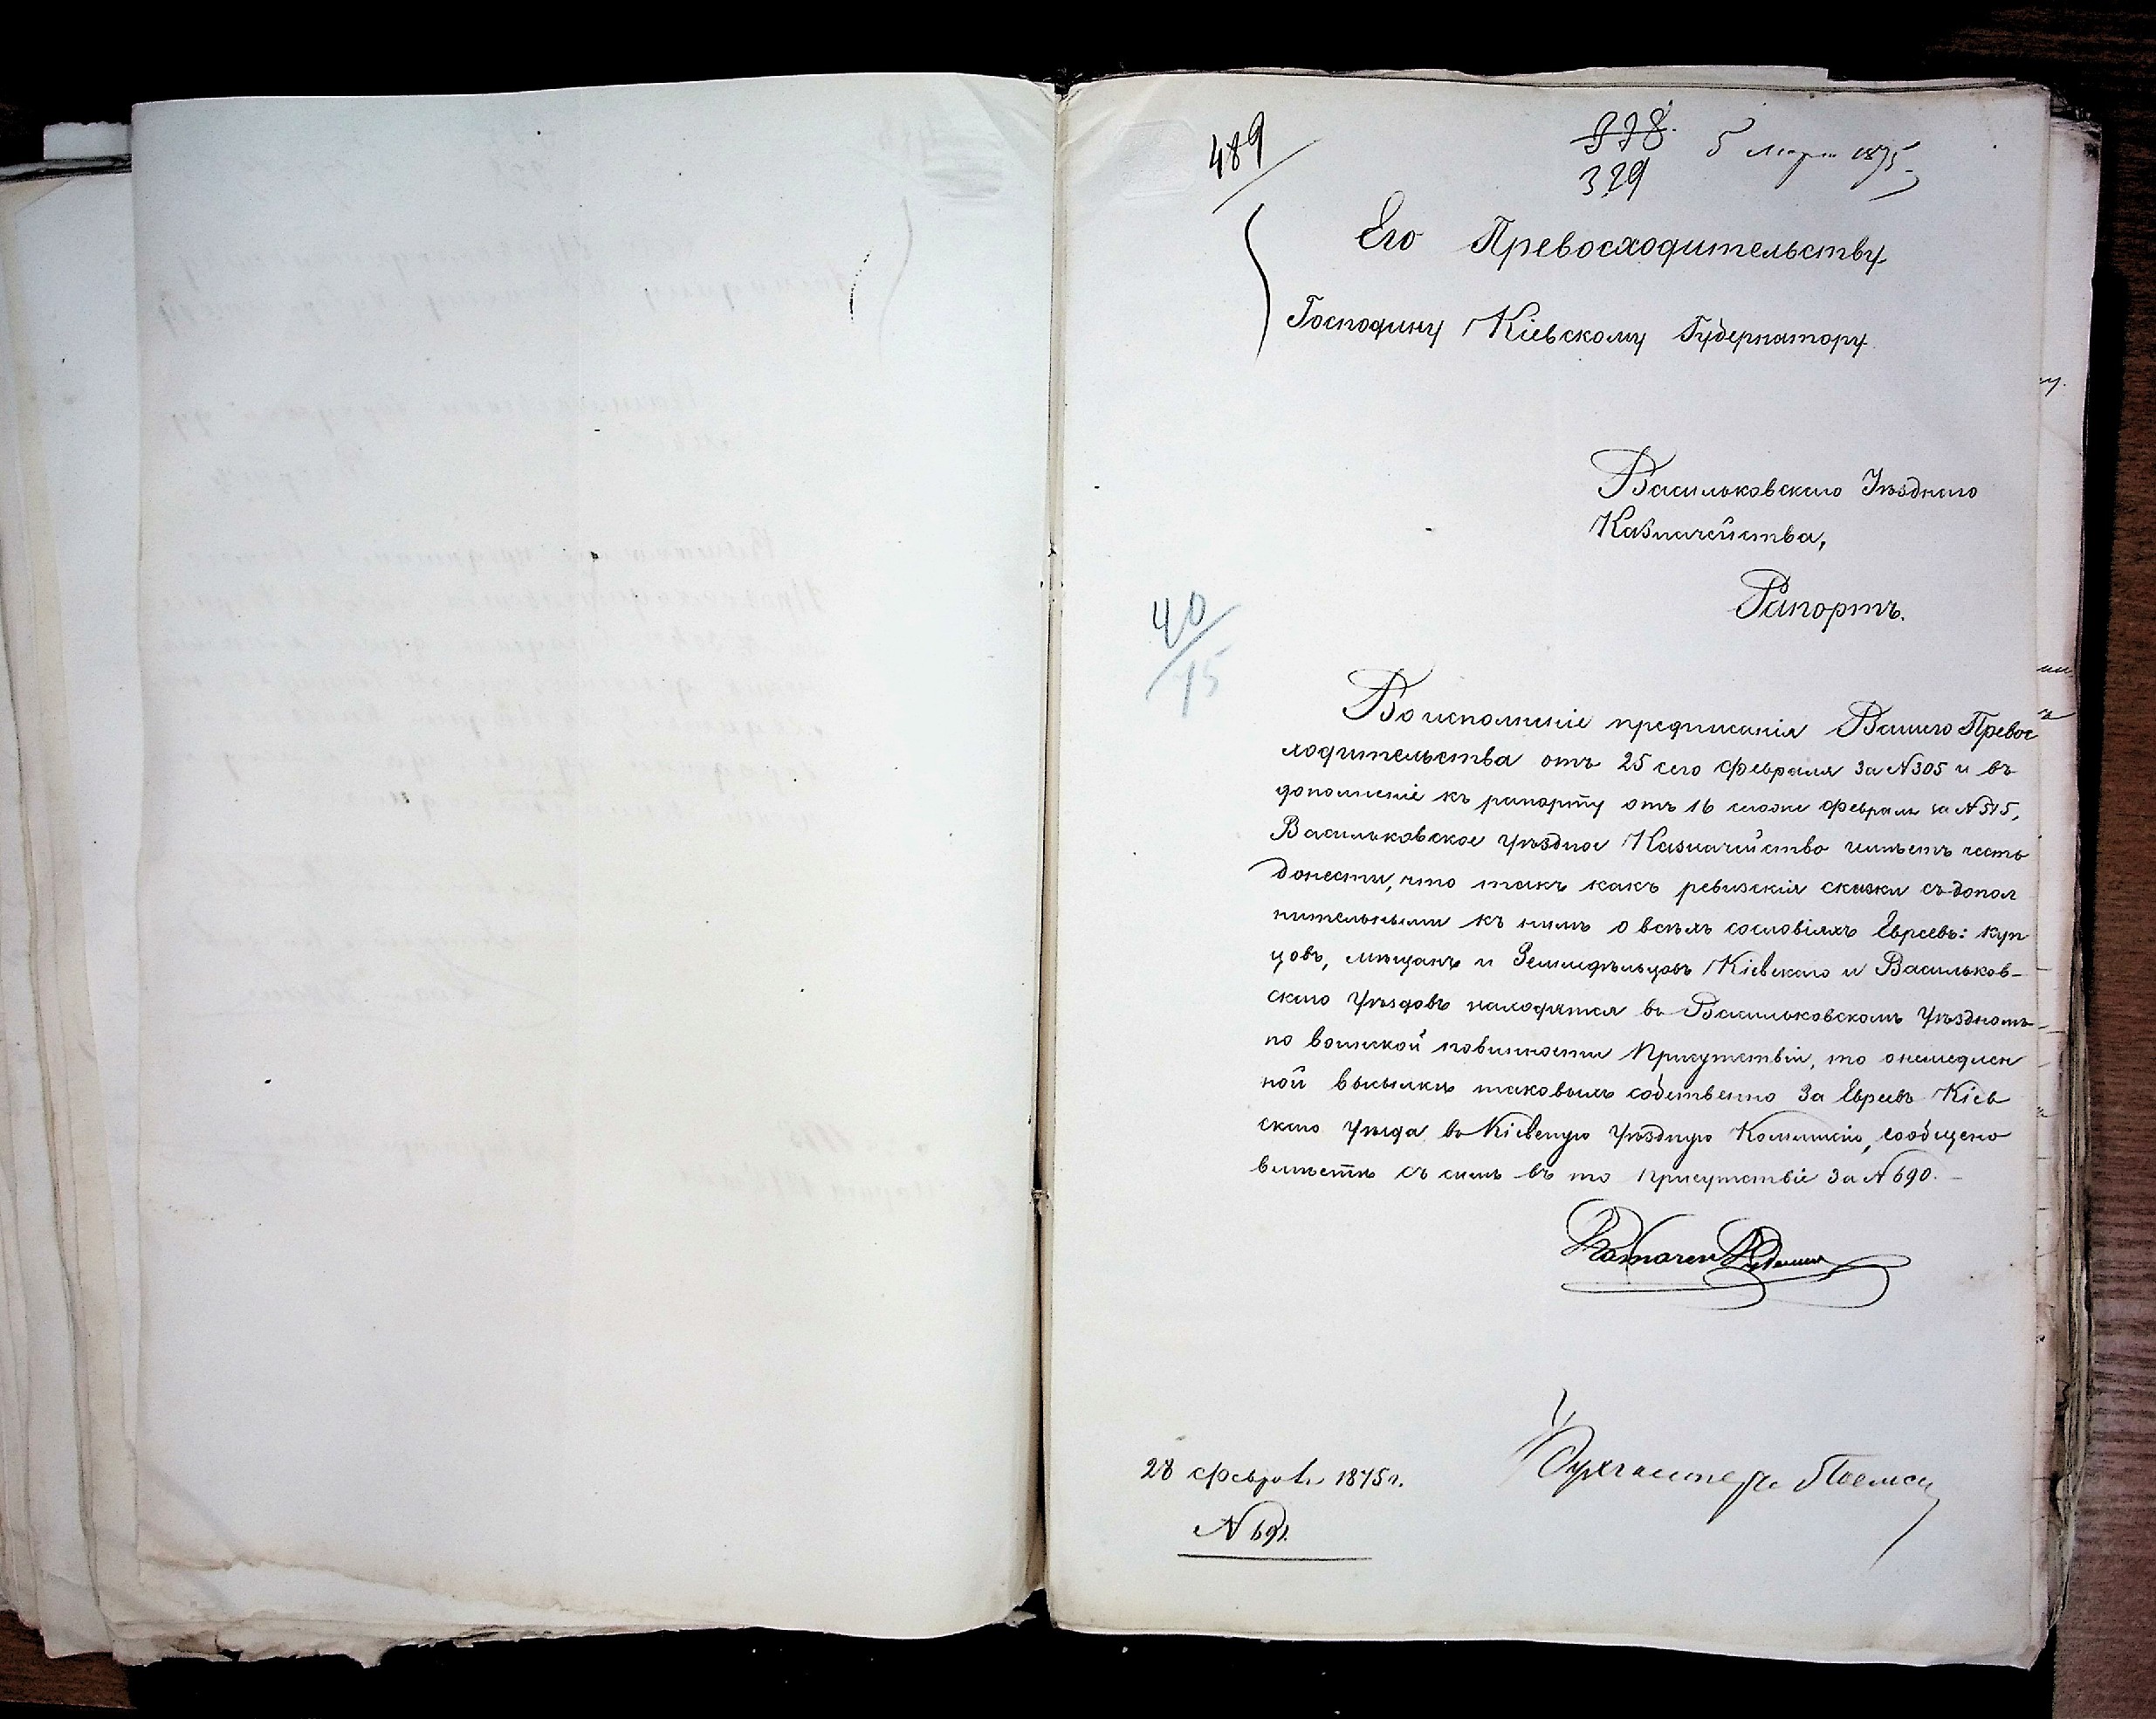 489
378.
329
5 Марта 1875
Его Превосходительству
Господину Кіевскому Губернатору
Васильковскаго Уѣзднаго
Казначейства,
Рапортъ.
40/15
Во исполненіе предписанія Вашего Превос
ходительства отъ 25 сего февраля за N 305 и въ
дополненіе къ рапорту отъ 16 сегоже февраля за N 515,
Васильковское уѣздное Казначейство имѣетъ честь
донести, что такъ какъ ревизскія сказки съ допол
нительными къ нимъ о всѣхъ сословіяхъ Евреевъ: куп
цовъ, мѣщанъ и Земледѣльцовъ Кіевскаго и Васильков-
скаго Уѣздовъ находятся въ Васильковскомъ Уѣздномъ
по воинской повинности Присутствіи, то о немедлен
ной высылкѣ таковыхъ собственно за Евреевъ Кіев
скаго Уѣзда въ Кіевскую Уѣздную Коммисію, сообщено
вмѣстѣ съ симъ въ то присутствіе за N 690.
Казначей
28 февраля 1875 г.
N 691.
Бухгалтеръ